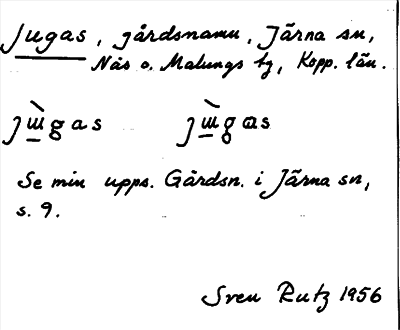 Jugas, gårdsnamn, Järna sn,
Nås o. Malungs tg, Kopp. län.
jɯ̀gas jɯ̀gas
Se min upps. Gårdsn. i Järna sn,
s. 9.
Sven Rutz 1956